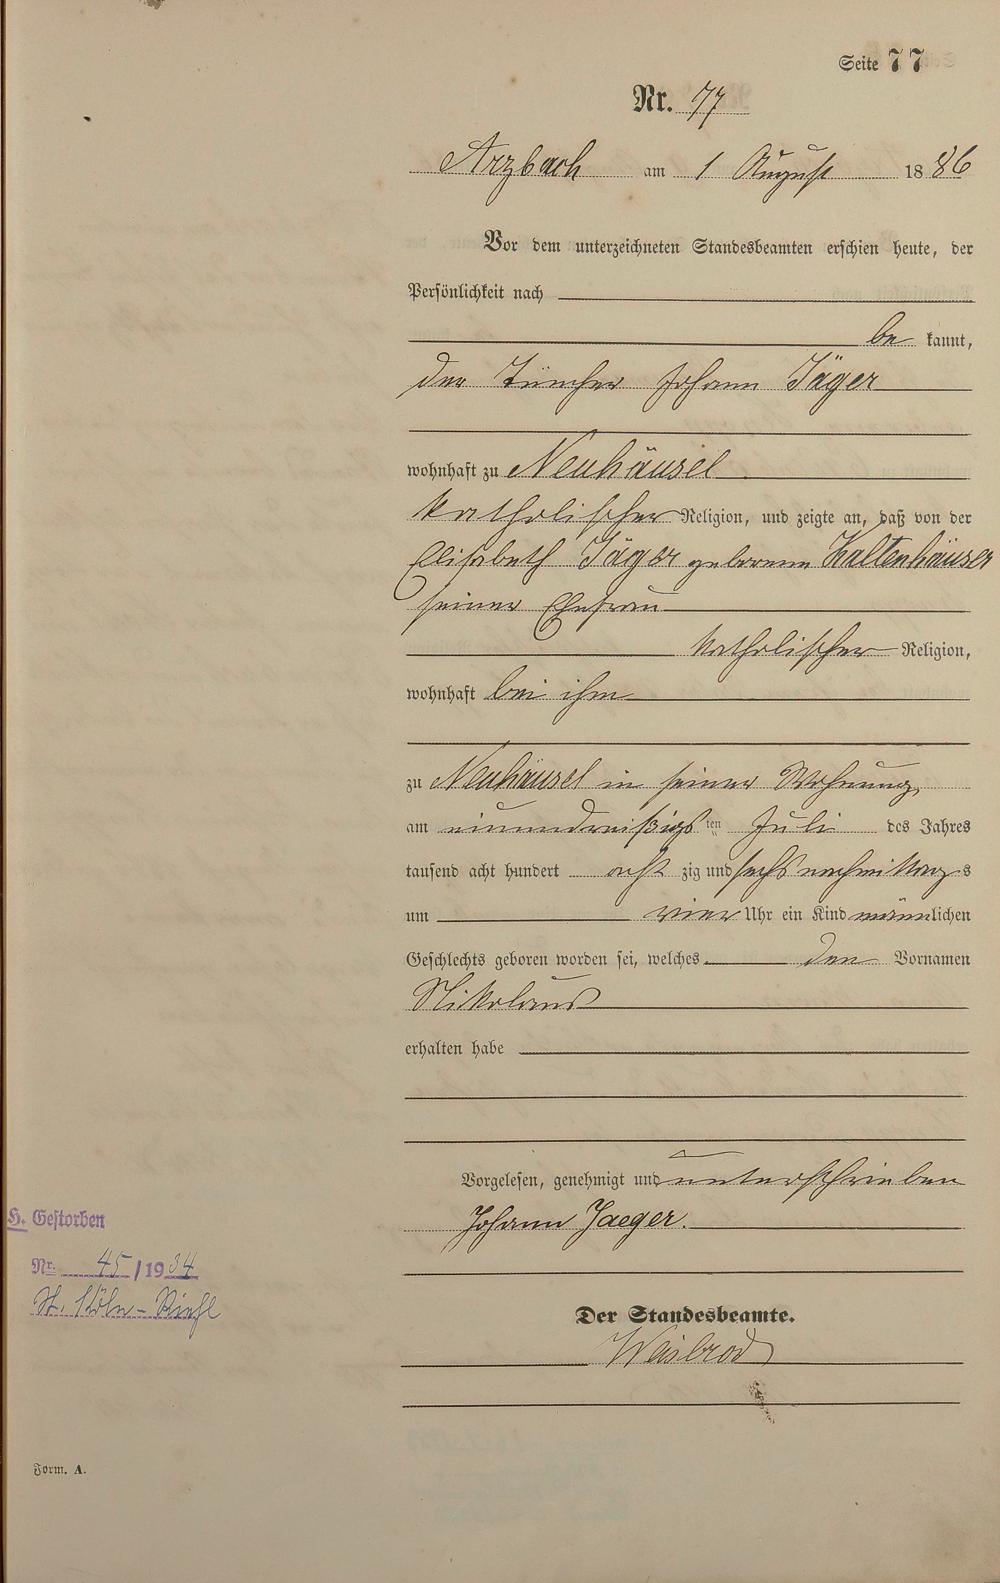 Seite 77
Nr. 77
Arzbach am 1 August 1886
Vor dem unterzeichneten Standesbeamten erschien heute, der
Persönlichkeit nach
be kannt,
der Tüncher Johann Jäger
wohnhaft zu Neuhäusel
katholischer Religion, und zeigte an, daß von der
Elisabeth Jäger geborenen Kaltenhäuser
seiner Ehefrau
katholischer Religion,
wohnhaft bei ihm
zu Neuhäusel in seiner Wohnung,
am einunddreißigsten Juli des Jahres
tausend acht hundert acht zig und sechs nachmittags
um vier Uhr ein Kind männlichen
Geschlechts geboren worden sei, welches den Vornamen
Nikolaus
erhalten habe
Vorgelesen, genehmigt und unterschrieben
Johann Jaeger.
H. Gestorben
Nr. 45/1934
St. Köln-Riehl
Der Standesbeamte.
Weisbrod
Form. A.